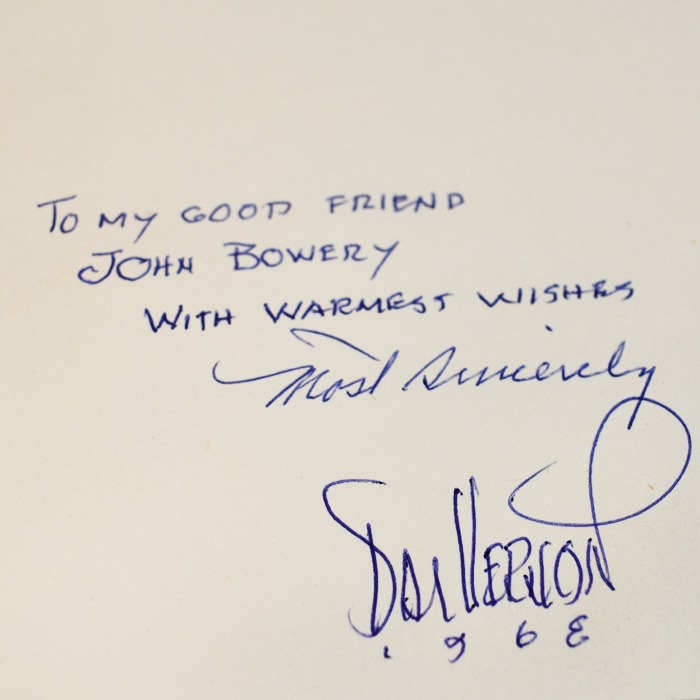 TO MY GOOD FRIEND
JOHN BOWERY
WITH WARMEST WISHES
Most Sincerely
DAI VERNON
1968